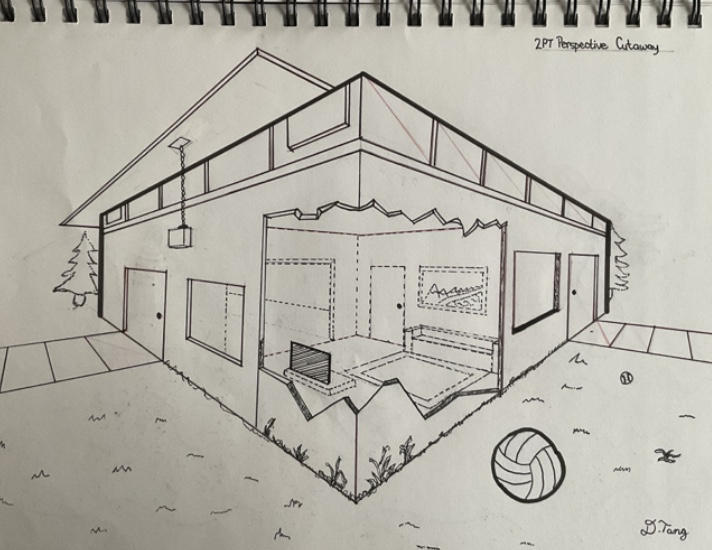 2PT Perspective Cutaway
D. Tang